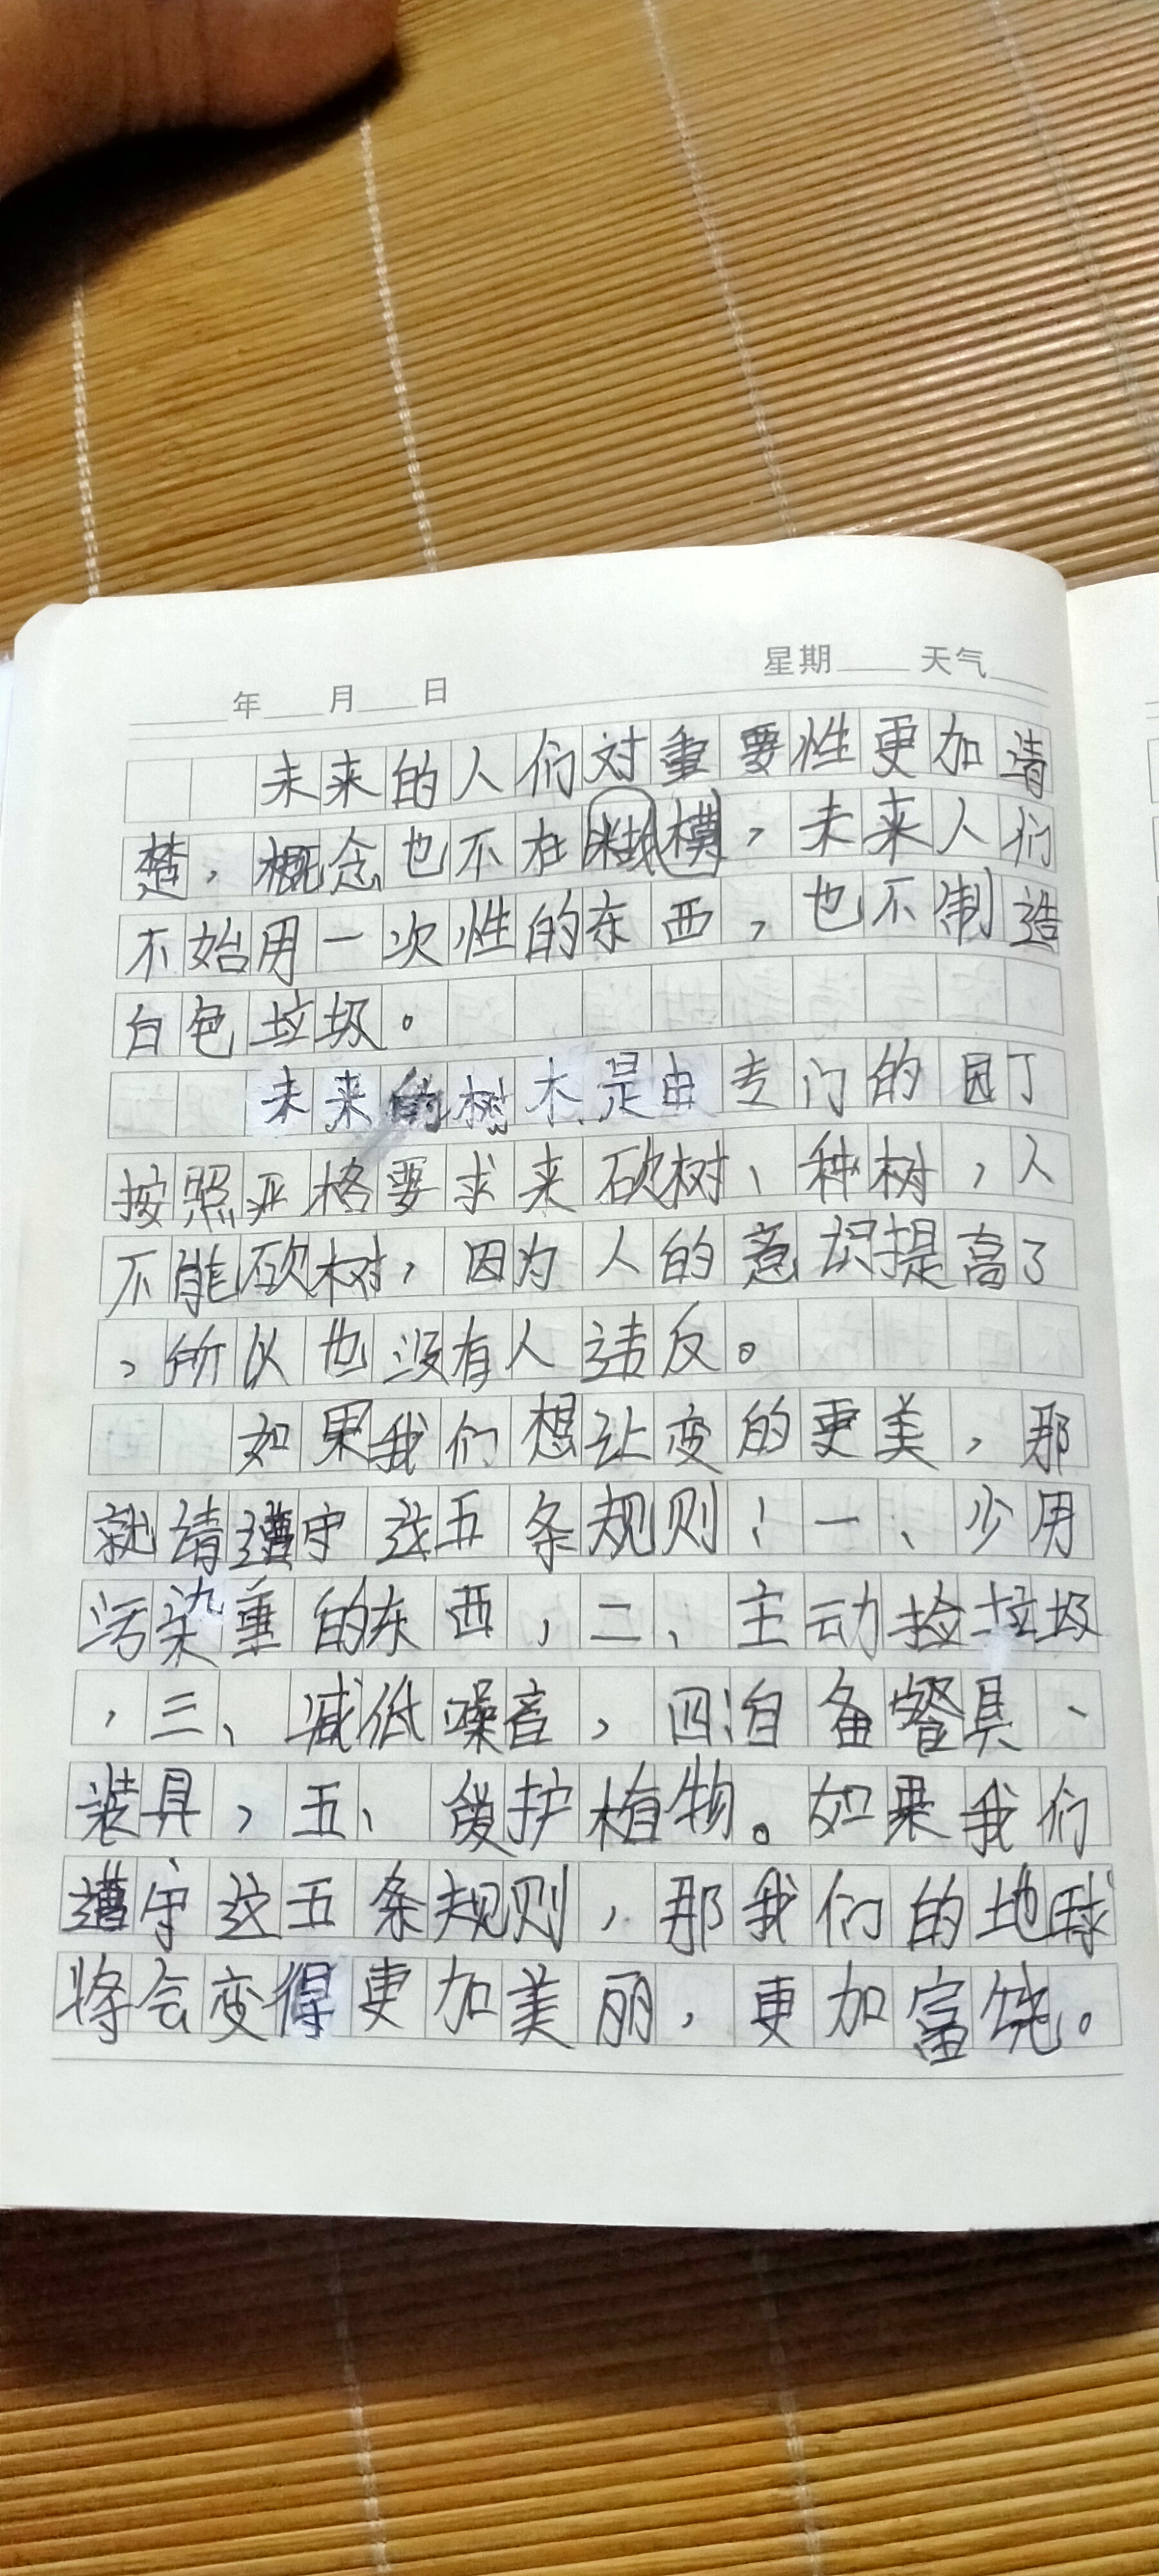 年 月 日 星期 天气
未来的人们对重要性更加清
楚，概念也不在糊模，未来人们
不始用一次性的东西，也不制造
白色垃圾。
未来的树木是由专门的园丁
按照严格要求来砍树、种树，人
不能砍树，因为人的意识提高了
，所以也没有人违反。
如果我们想让变的更美，那
就请遵守这五条规则：一、少用
污染重的东西，二、主动捡垃圾
，三、减低噪音，四自备餐具、
装具，五、爱护植物。如果我们
遵守这五条规则，那我们的地球
将会变得更加美丽，更加富饶。